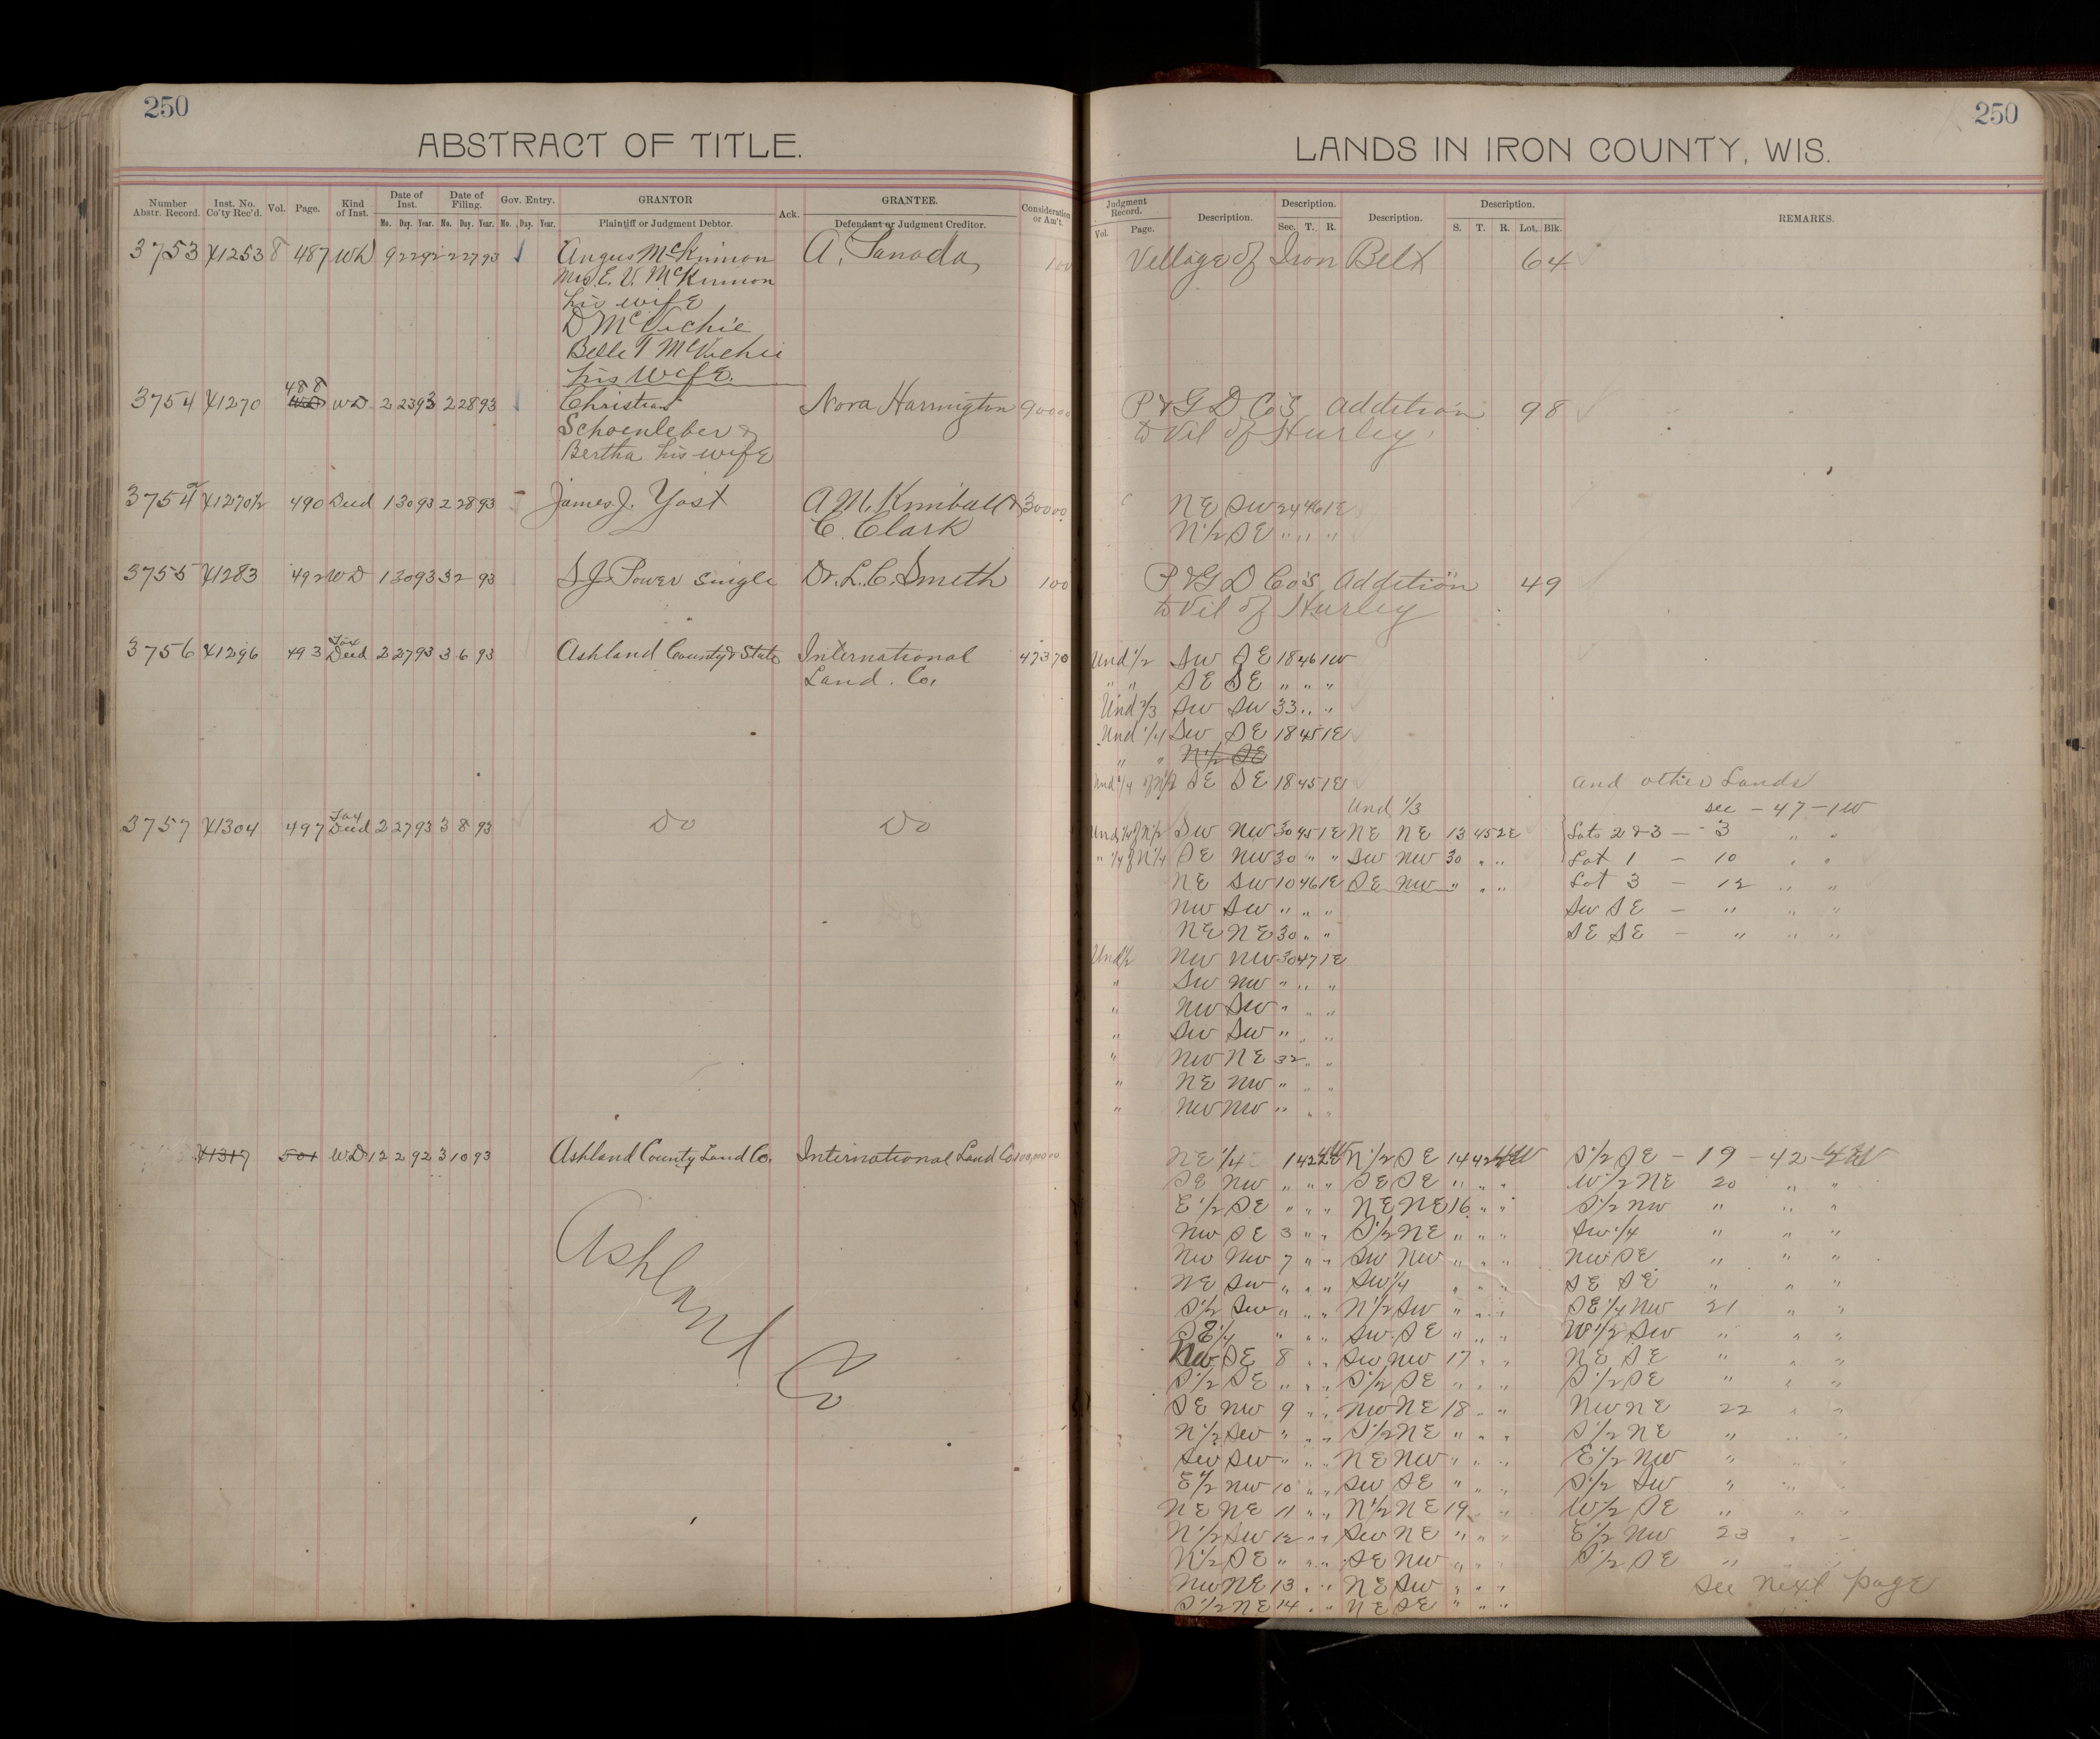 250
ABSTRACT OF TITLE.
Number Abstr. Record. Inst. No. Co'ty Rec'd. Vol. Page. Kind of Inst. Date of Inst. Date of Filing. Gov. Entry. GRANTOR Ack. GRANTEE. Consideration or Am't.
Mo. Day. Year. Mo. Day. Year. Mo. Day. Year. Plaintiff or Judgment Debtor. Defendant or Judgment Creditor.
3753 X1253 8 487 WD 9 22 92 2 27 93 Angus McKinnon A. Lanada 100
Mrs. E. V. McKinnon
his wife
D McVichie
Belle T McVichie
his wife.
488
3754 X1270 WD 2 23 93 2 28 93 Christian Nora Harrington 900 00
Schoenleber &
Bertha his wife
3754a X1270½ 490 Deed 1 30 93 2 28 93 James J. Yost A M. Kimball & 300 00
C. Clark
3755 X1283 492 WD 1 30 93 3 2 93 S J. Power single Dr. L. C. Smith 100
3756 X1296 493 Tax Deed 2 27 93 3 6 93 Ashland County & State International 473 70
Land. Co.
3757 X1304 497 Tax Deed 2 27 93 3 8 93 Do Do
X1317 501 WD 12 2 92 3 10 93 Ashland County Land Co. International Land Co
Ashland
Co
250
LANDS IN IRON COUNTY, WIS.
Judgment Record. Description. Description. Description. Description. REMARKS.
Vol. Page. Sec. T. R. S. T. R. Lot, Blk.
Village of Iron Belt 64
P & G D Co's Addition 98
to Vil of Hurley.
NE SW 24 46 1E
N½ SE " " "
P & G D Co's Addition 49
to Vil of Hurley
Und ½ SW SE 18 46 1W
" " SE SE " " "
Und ⅔ SW SW 33 " "
Und ¼ SW SE 18 45 1E
" " N½ SE
Und ¼ of N½ SE SE 18 45 1E and other Lands
Und ⅓ sec - 47 - 1W
Und ¼ of N½ SW NW 30 45 1E NE NE 13 45 2E Lots 2 & 3 - 3 " "
" ¼ of N¼ SE NW 30 " " SW NW 30 " " Lot 1 - 10 " "
NE SW 10 46 1E SE NW " " " Lot 3 - 12 " "
NW SW " " " SW SE - " " "
NE NE 30 " " SE SE - " " "
Und ½ NW NW 30 47 1E
" SW NW " " "
" NW SW " " "
" SW SW " " "
" NW NE 32 " "
" NE NW " " "
" NW NW " " "
NE ¼ 1 42 N½ SE 14 42 S½ SE - 19 - 42 -
SE NW " " " SE SE " " " W½ NE 20 " "
E½ SE " " " NE NE 16 " " S½ NW " " "
NW SE 3 " " S½ NE " " " SW ¼ " " "
NW NW 7 " " SW NW " " " NW SE " " "
NE SW " " " SW ¼ " " " SE SE " " "
S½ SW " " " N½ SW " " " SE ¼ NW 21 " "
SE ¼ " " " SW SE " " " W½ SW " " "
NW SE 8 " " SW NW 17 " " NE SE " " "
S½ SE " " " S½ SE " " " S½ SE " " "
SE NW 9 " " NW NE 18 " " NW NE 22 " "
N½ SW " " " S½ NE " " " S½ NE " " "
SW SW " " " NE NW " " " E½ NW " " "
E½ NW 10 " " SW SE " " " S½ SW " " "
NE NE 11 " " N½ NE 19 " " W½ SE " " "
N½ SW 12 " " SW NE " " " E½ NW 23 " "
N½ SE " " " SE NW " " " S½ SE " " "
NW NE 13 " " NE SW " " " See next page
S½ NE 14 " " NE SE " " "